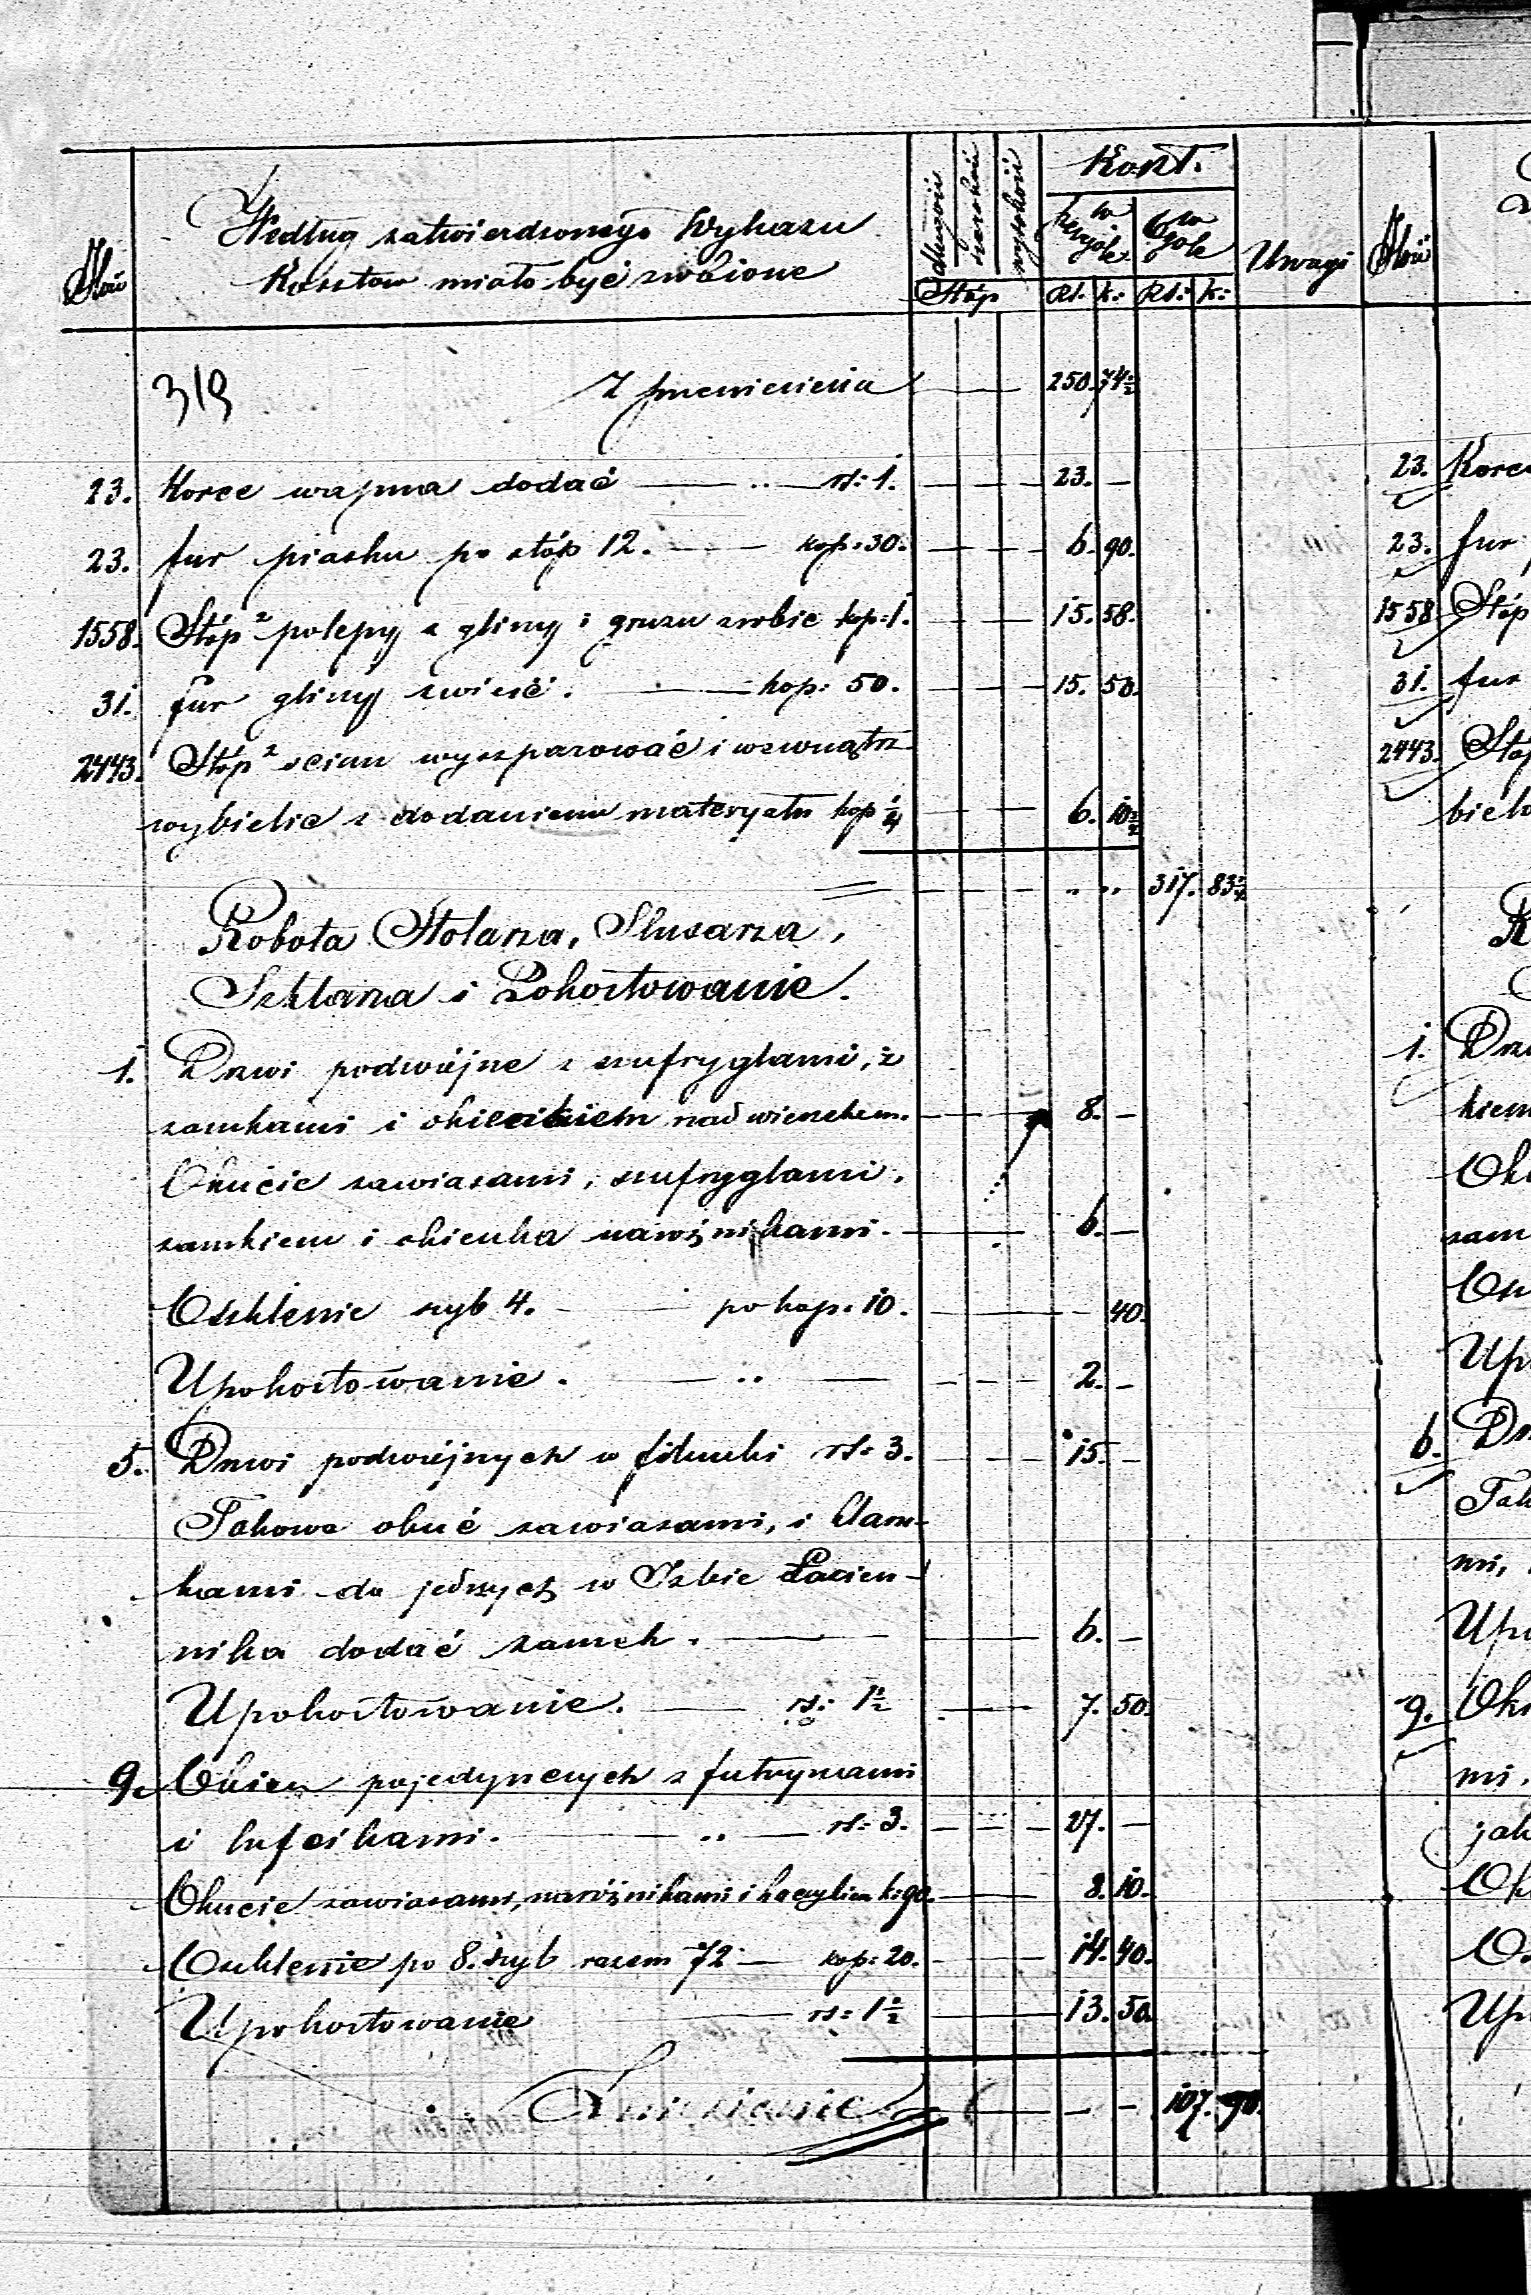 Ilość
Według zatwierdzonego Wykazu
Kosztów miało być zrobione
długość
szerokość
wysokość
Stóp
Koszt.
w szczególe
w ogóle
Rs. k: Rs: k:
Uwagi
Ilość
319
Z przeniesienia 250. 74½
23. Korce wapna dodać rs: 1. 23. —
23. fur piasku po stóp 12. kop: 30. 6. 90.
1558. Stóp² polepy z gliny i gruzu zrobić kop: 1. 15. 58.
31. fur gliny zwieść. kop: 50. 15. 50.
2443. Stóp² ścian wyszparować i wewnątrz
wybielić z dodaniem materyału kop ¼ 6. 10½
317. 83
Robota Stolarza, Slusarza,
Szklarza i Pokostowanie.
1. Drzwi podwójne z szufryglami, z
zamkami i okienkiem nad wierzchem. 8. —
Okucie zawiasami, szufryglami,
zamkiem i okienka narożnikami. 6. —
Oszklenie szyb 4. po kop: 10. 40.
Upokostowanie. 2. —
5. Drzwi podwójnych w filunki rs: 3. 15. —
Takowe okuć zawiasami, i klam-
kami do jednych w Izbie
nika dodać zamek. 6. —
Upokostowanie. rs: 1½ 7. 50.
9. Okien pojedynczych z futrynami
i lufcikami. rs: 3. 27. —
Okucie zawiasami, narożnikami i haczykiem k: 90. 8. 10.
Oszklenie po 8. szyb razem 72 kop: 20. 14. 40.
Upokostowanie rs: 1½ 13. 50.
107. 90.
23. Korce
23. fur
1558 Stóp
31. fur
2443. Stóp
biel
1. Drz
kiem
Oku
zam
Osz
Upo
6. Drz
Tak
mi,
Upo
9. Oki
mi,
jak
Ok
Os
Upo